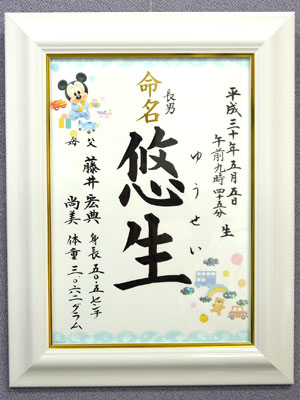 平成三十年五月五日
午前九時四十五分 生
ゆうせい
命名
長男
悠生
父 藤井 宏典
母 尚美
身長 五〇・五センチ
体重 三〇六二グラム